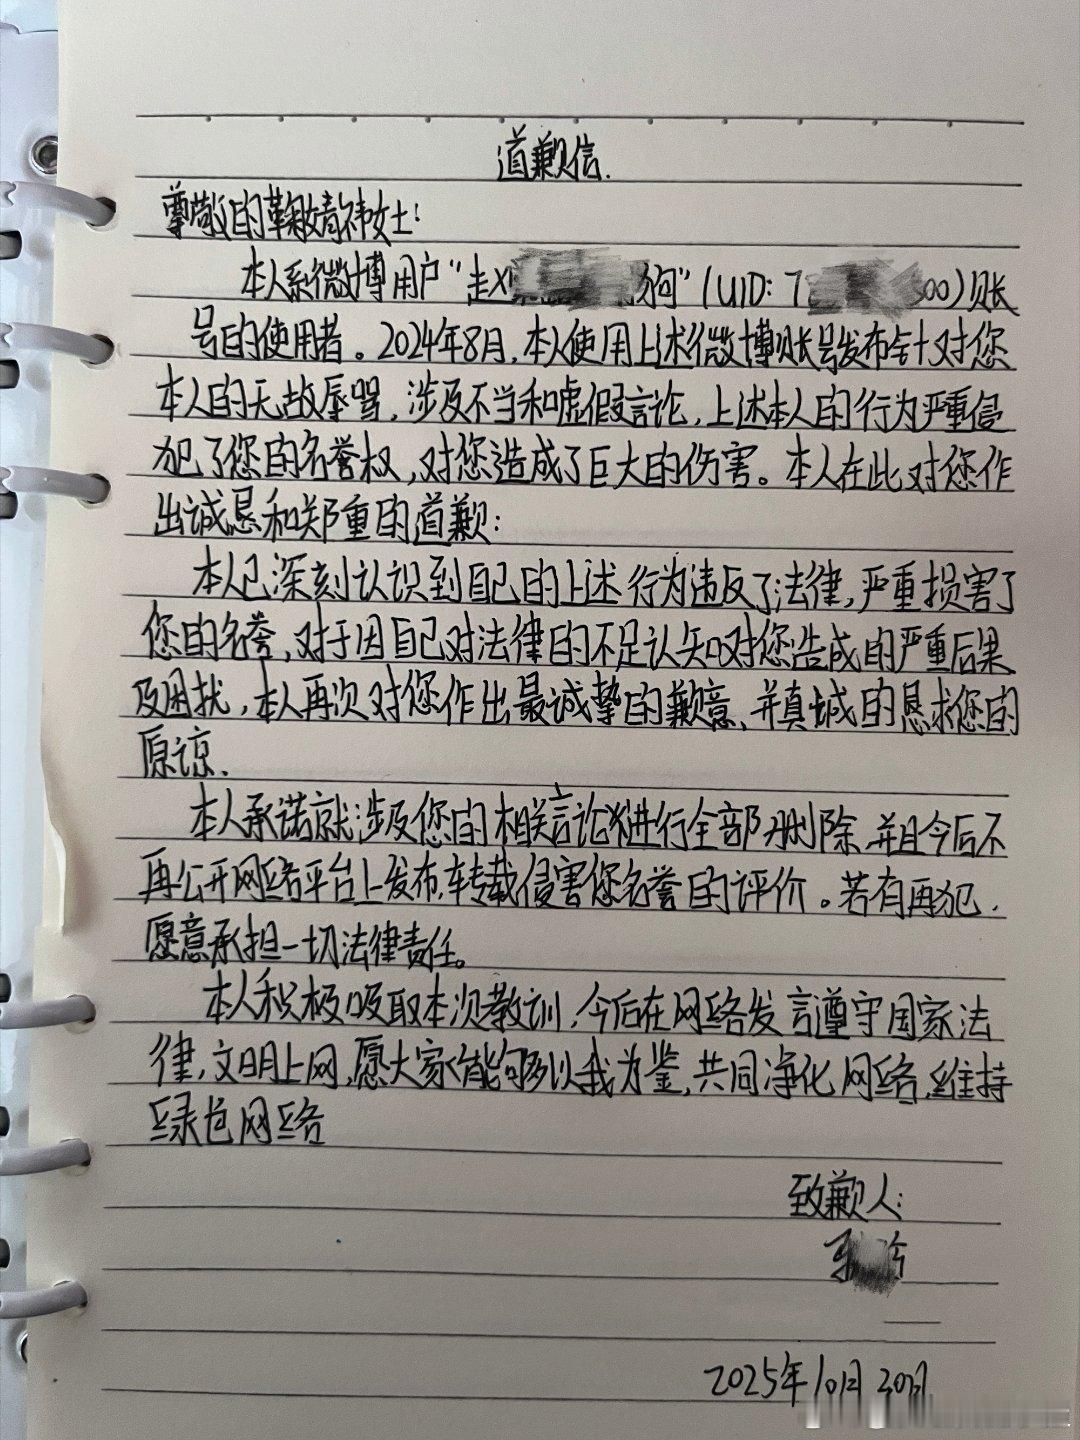 道歉信.
尊敬的鞠婧祎女士:
本人系微博用户“赵 狗”(UID: 7 300)账
号的使用者。2024年8月,本人使用上述微博账号发布针对您
本人的无故辱骂,涉及不当和虚假言论,上述本人的行为严重侵
犯了您的名誉权,对您造成了巨大的伤害。本人在此对您作
出诚恳和郑重的道歉:
本人已深刻认识到自己的上述行为违反了法律,严重损害了
您的名誉,对于因自己对法律的不足认知对您造成的严重后果
及困扰,本人再次对您作出最诚挚的歉意、并真诚的恳求您的
原谅.
本人承诺就涉及您的相关言论进行全部删除,并且今后不
再公开网络平台上发布、转载侵害您名誉的评价。若有再犯.
愿意承担一切法律责任。
本人积极吸取本次教训,今后在网络发言遵守国家法
律,文明上网,愿大家能够以我为鉴,共同净化网络,维持
绿色网络
致歉人:
2025年10月30日